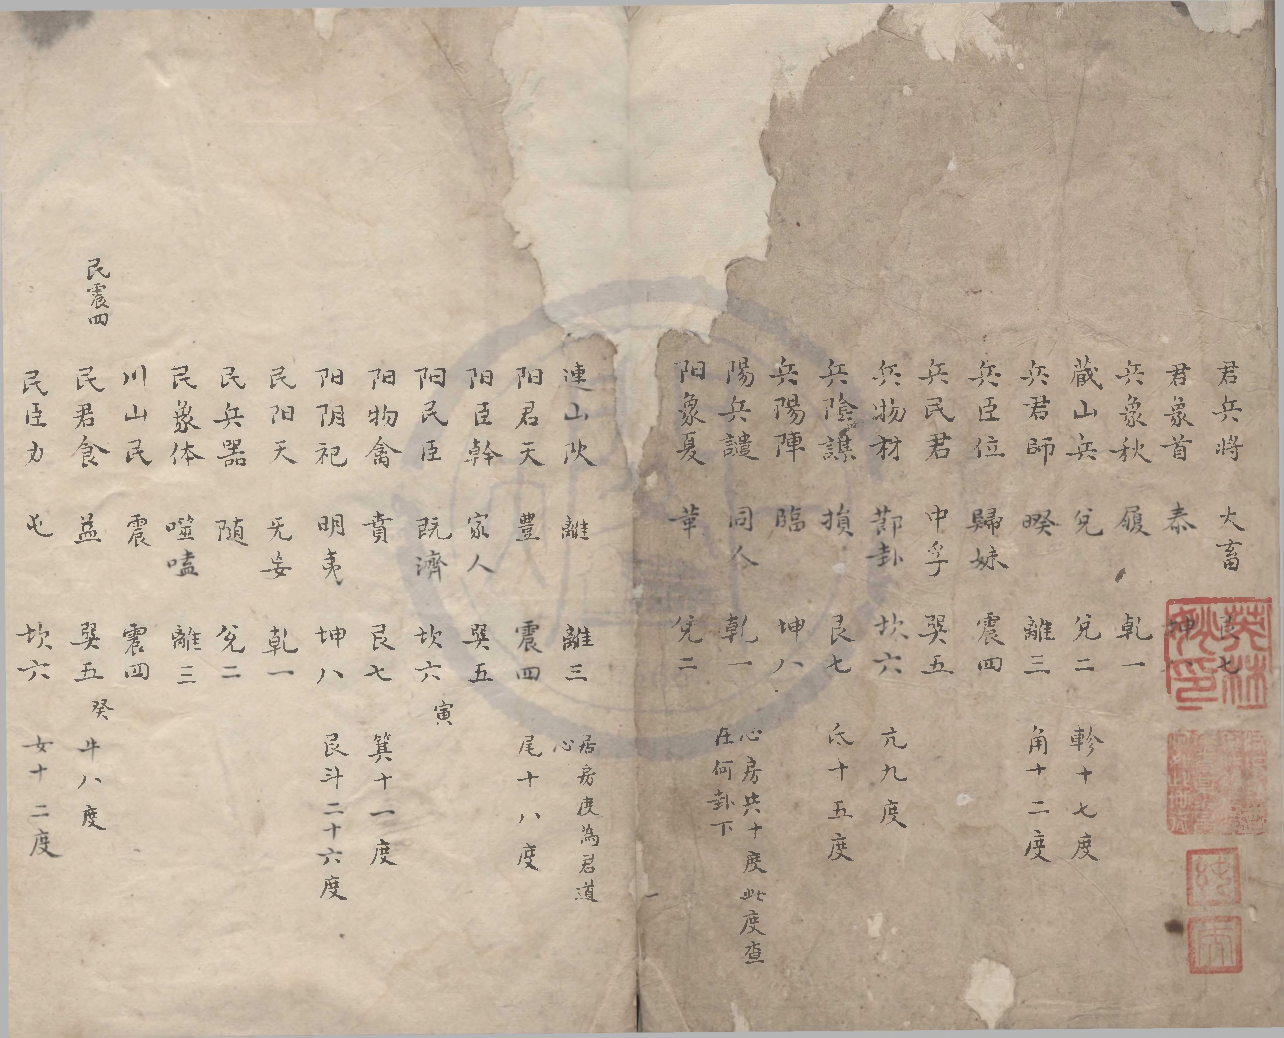 君兵將 大畜 艮七
君象首 泰 坤
兵象秋 履 乾一
蔵山兵 兌 兌二 軫十七度
兵君師 暌 離三 角十二度
兵臣位 歸妹 震四
兵民君 中孚 巽五
兵物材 節卦 坎六 亢九度
兵陰謀 損 艮七 氐十五度
兵陽陣 臨 坤八
陽兵譴 同人 乾一 心房共十度此度查
在何卦下
阳象夏 革 兌二
連山 離 離三 居房度為君道
心
阳君天 豊 震四 尾十八度
阳臣幹 家人 巽五
阳民臣 既濟 坎六 寅
阳物禽 賁 艮七 箕十一度
阳阴祀 明夷 坤八 艮斗二十六度
民阳天 无妄 乾一
民兵器 随 兌二
民象体 噬嗑 離三
川山民 震 震四
民震四
民君食 益 巽五 癸 牛八度
民臣力 屯 坎六 女十二度